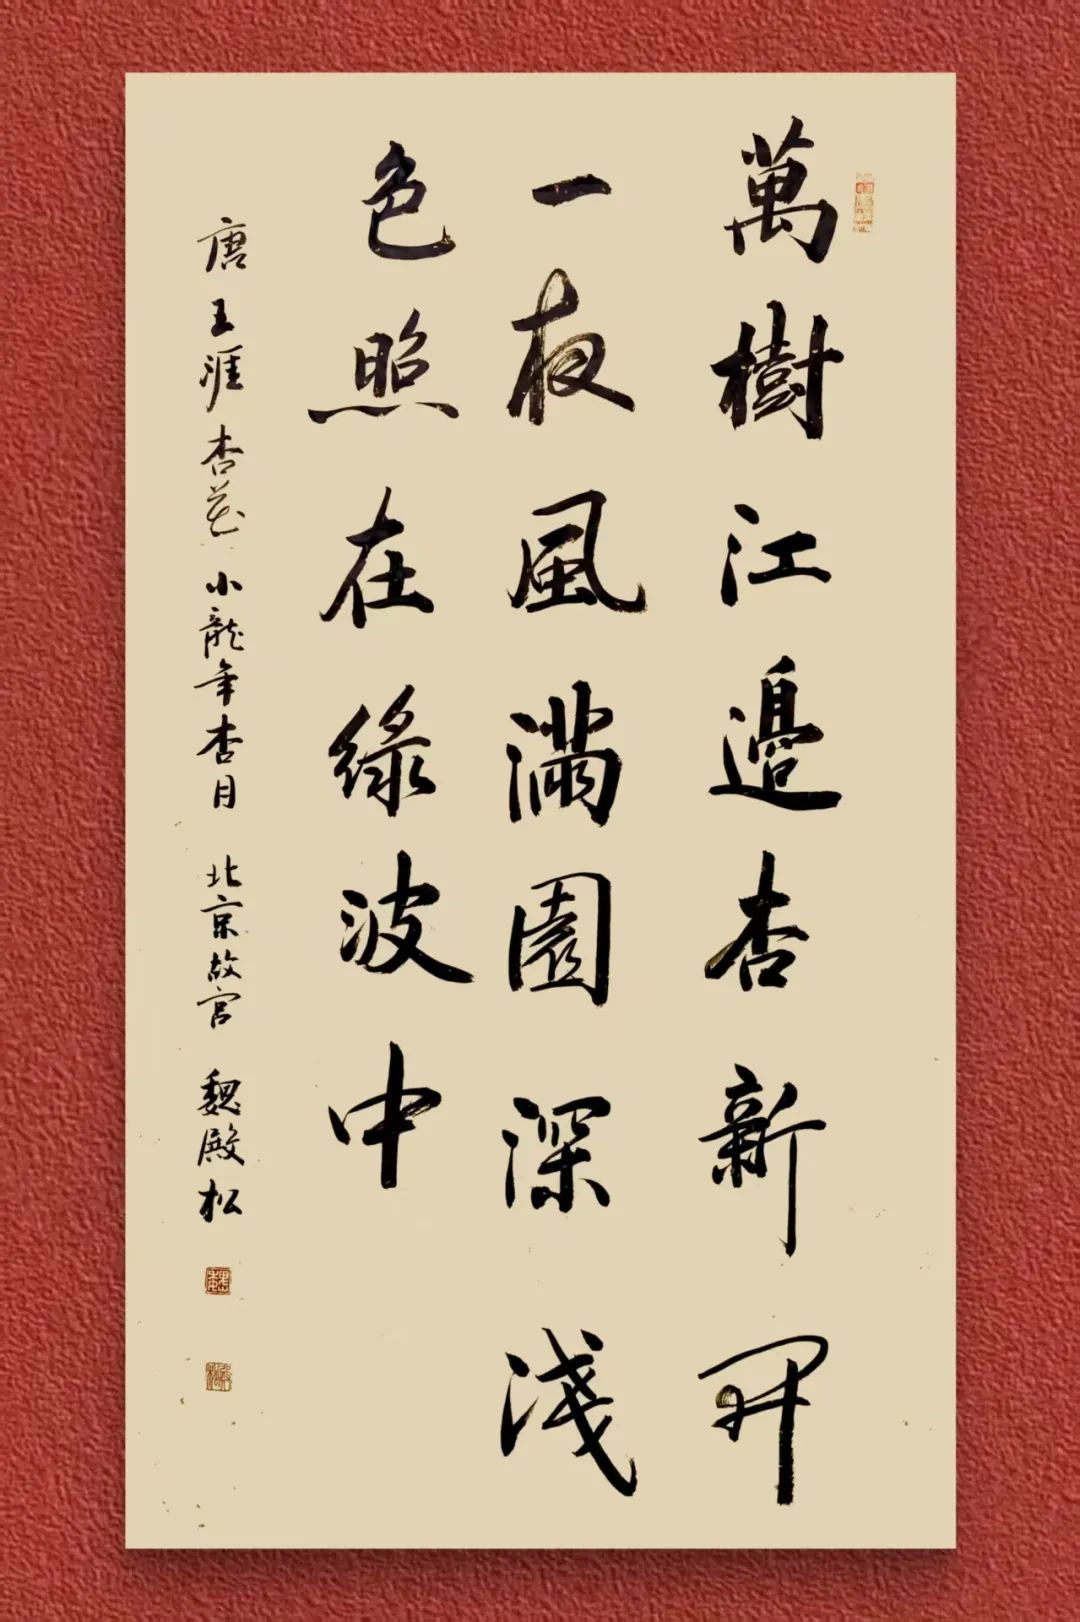 萬樹江邊杏新開
一夜風滿園深淺
色照在綠波中
唐王涯杏花 小龍年杏月 北京故宮 魏殿松